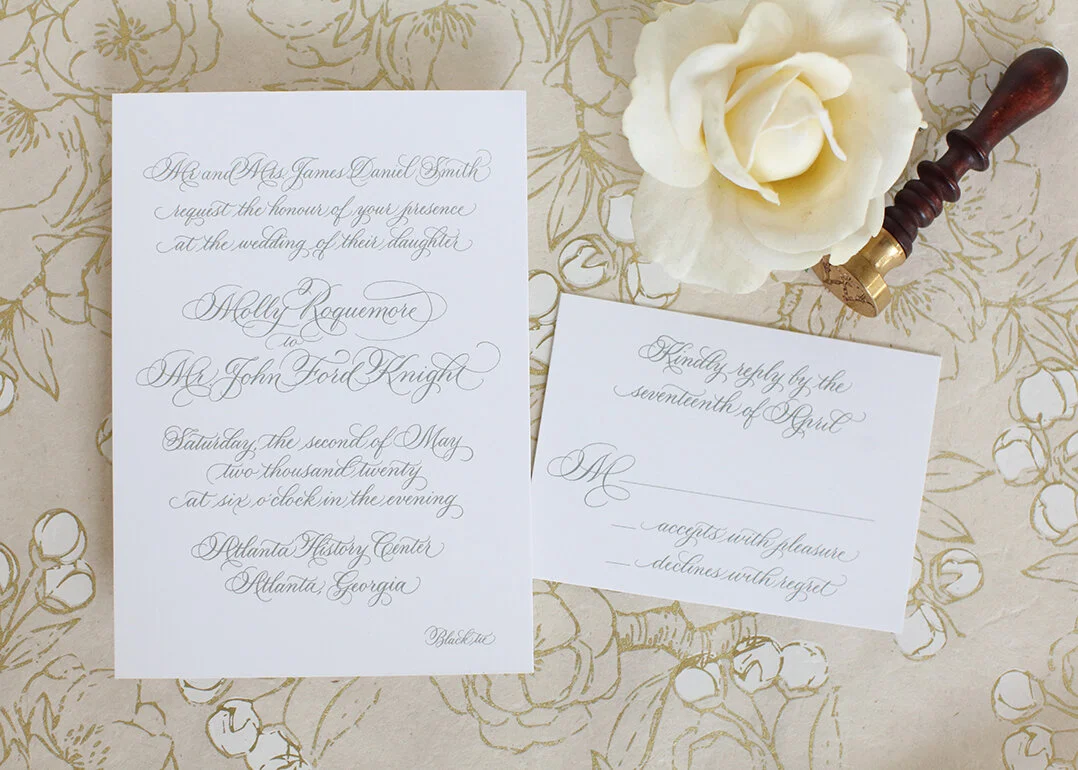 Mr and Mrs James Daniel Smith
request the honour of your presence
at the wedding of their daughter
Molly Roquemore
to
Mr John Ford Knight
Saturday, the second of May
two thousand twenty
at six o'clock in the evening
Atlanta History Center
Atlanta, Georgia
Black tie
Kindly reply by the
seventeenth of April
M
accepts with pleasure
declines with regret